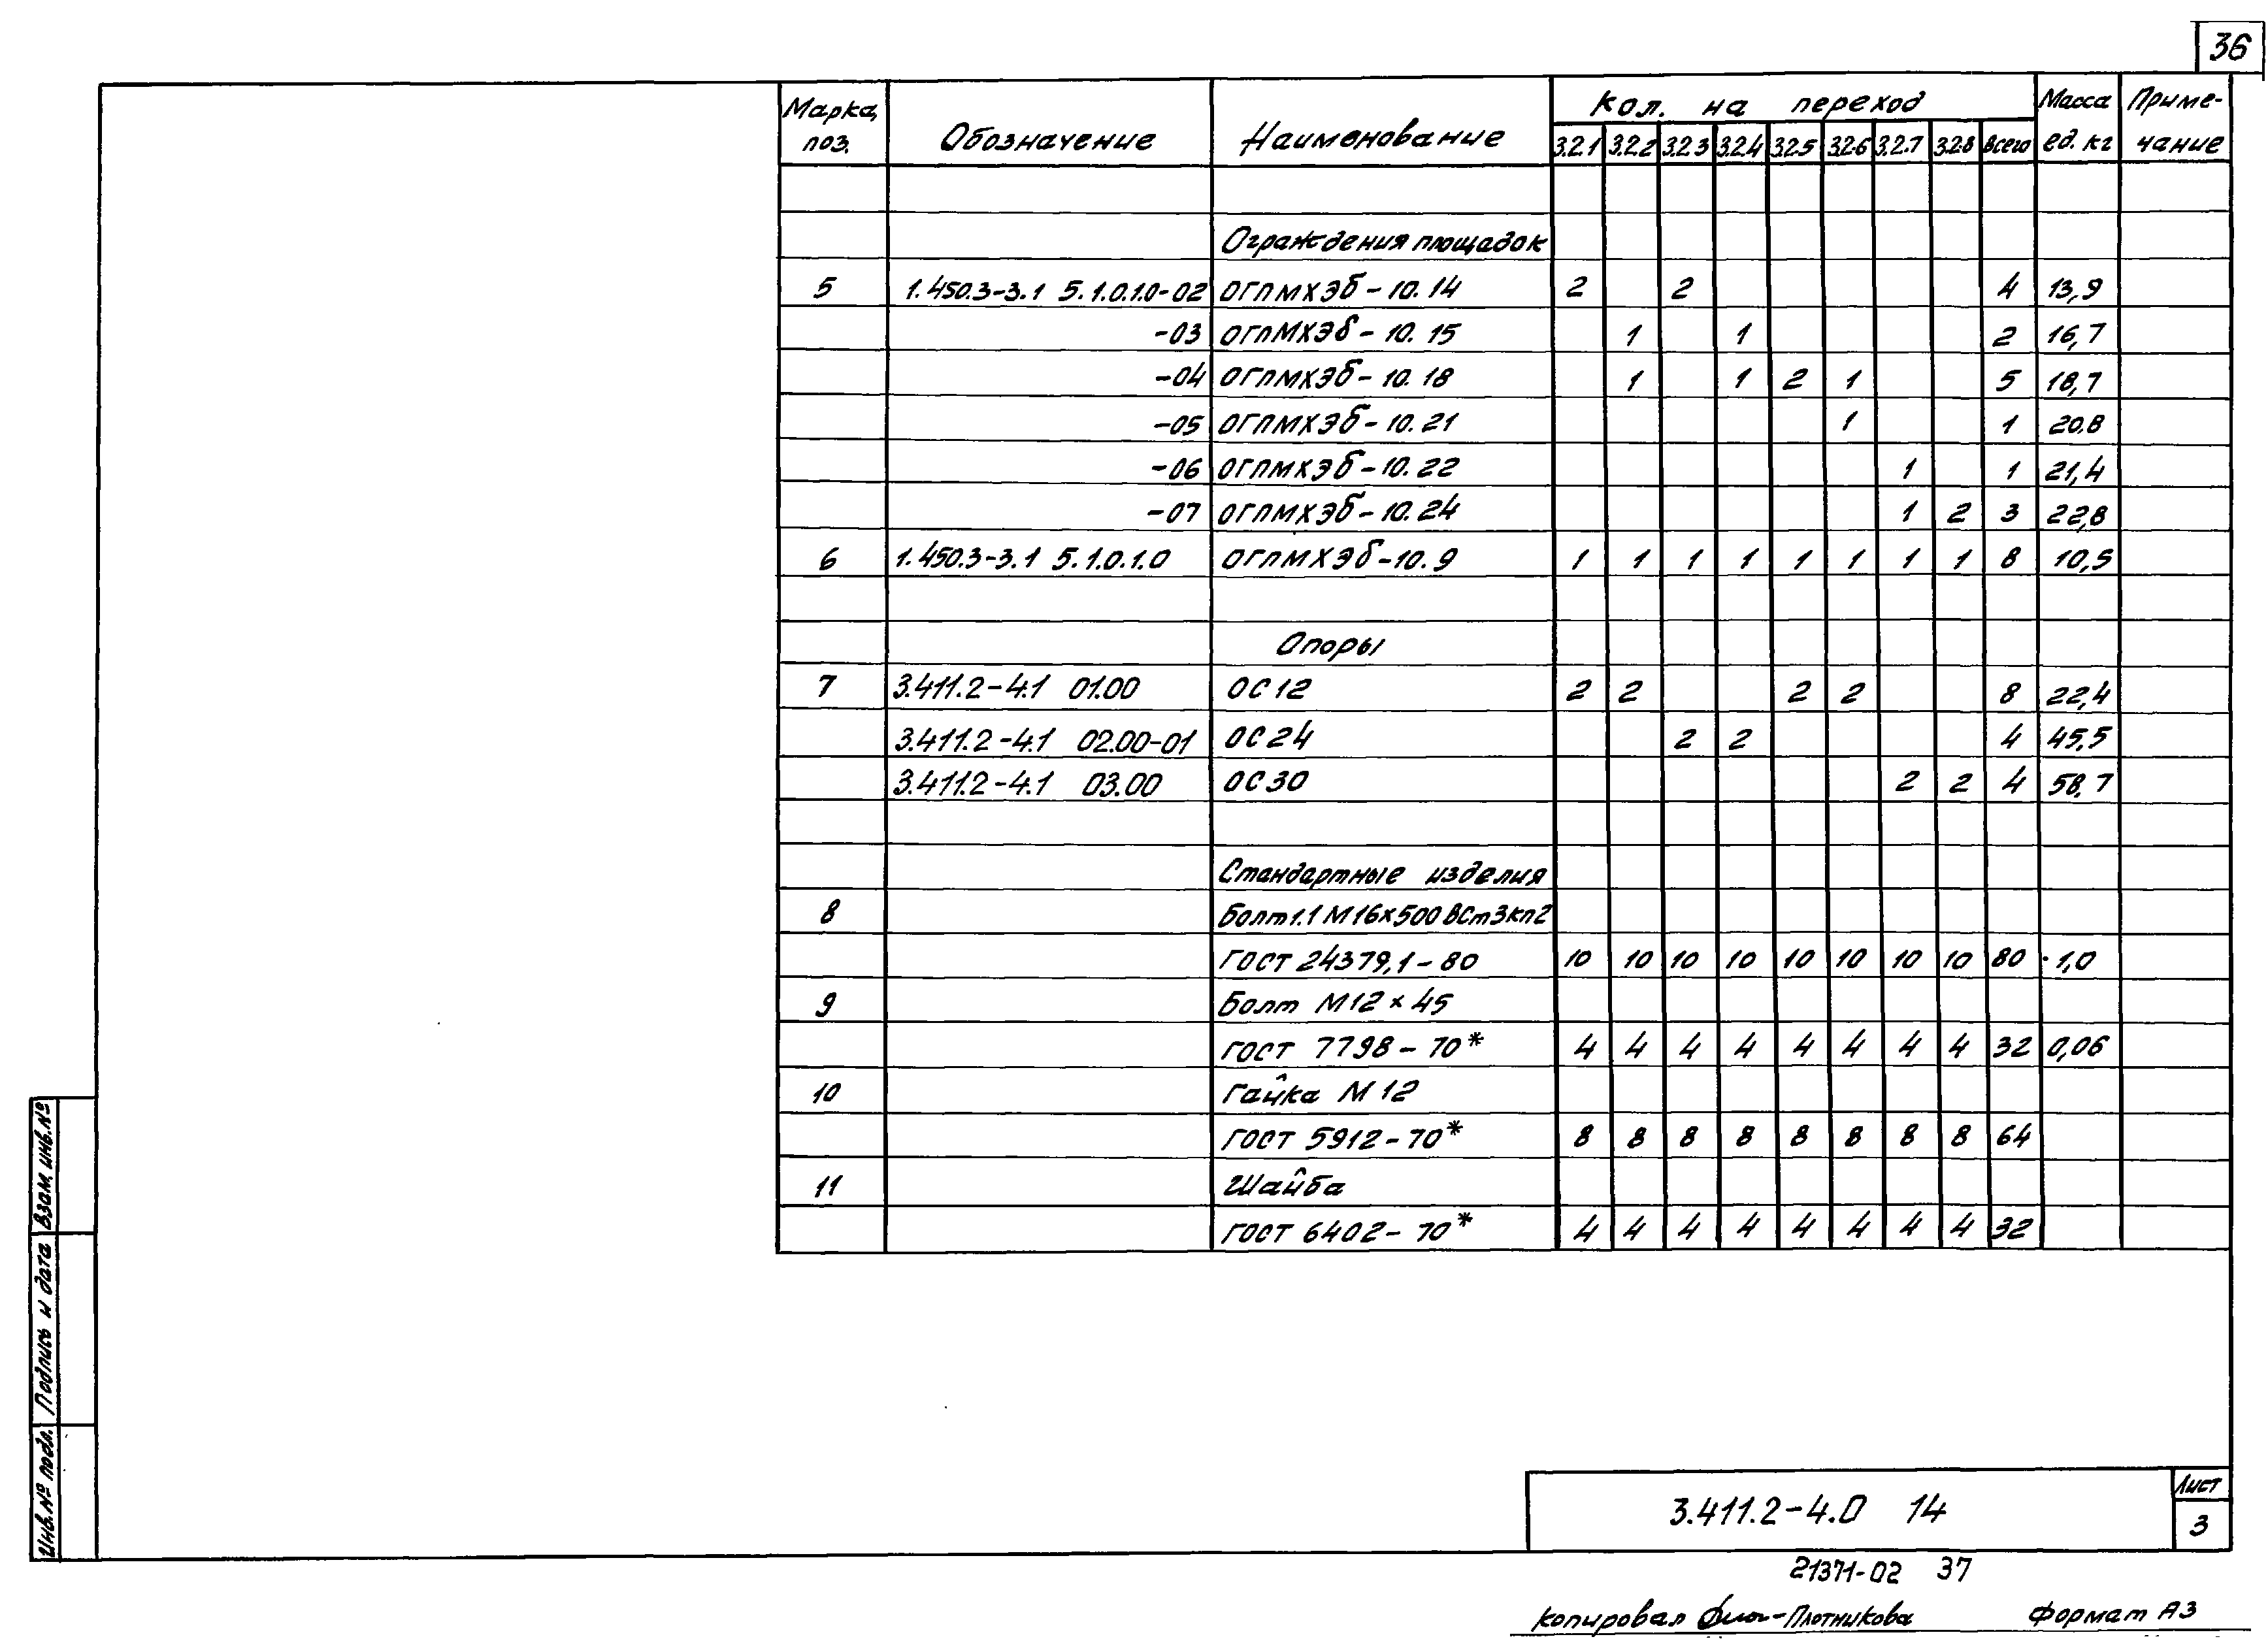 36
Марка, поз. Обозначение Наименование Кол. на переход Масса ед. кг Приме-чание
3.2.1 3.2.2 3.2.3 3.2.4 3.2.5 3.2.6 3.2.7 3.2.8 Всего
Ограждения площадок
5 1.450.3-3.1 5.1.0.1.0-02 ОГПМХЭб-10.14 2 2 4 13,9
-03 ОГПМХЭб-10.15 1 1 2 16,7
-04 ОГПМХЭб-10.18 1 1 2 1 5 18,7
-05 ОГПМХЭб-10.21 1 1 20.8
-06 ОГПМХЭб-10.22 1 1 21,4
-07 ОГПМХЭб-10.24 1 2 3 22,8
6 1.450.3-3.1 5.1.0.1.0 ОГПМХЭб-10.9 1 1 1 1 1 1 1 1 8 10,5
Опоры
7 3.411.2-4.1 01.00 ОС12 2 2 2 2 8 22,4
3.411.2-4.1 02.00-01 ОС24 2 2 4 45,5
3.411.2-4.1 03.00 ОС30 2 2 4 58,7
Стандартные изделия
8 Болт1.1 М16×500 ВСт3кп2
ГОСТ 24379,1-80 10 10 10 10 10 10 10 10 80 1,0
9 Болт М12×45
ГОСТ 7798-70* 4 4 4 4 4 4 4 4 32 0,06
10 Гайка М12
ГОСТ 5912-70* 8 8 8 8 8 8 8 8 64
11 Шайба
ГОСТ 6402-70* 4 4 4 4 4 4 4 4 32
Инв.№ подл. Подпись и дата Взам. инв.№
3.411.2-4.0 14
Лист
3
21371-02 37
Копировал Плотникова Формат А3